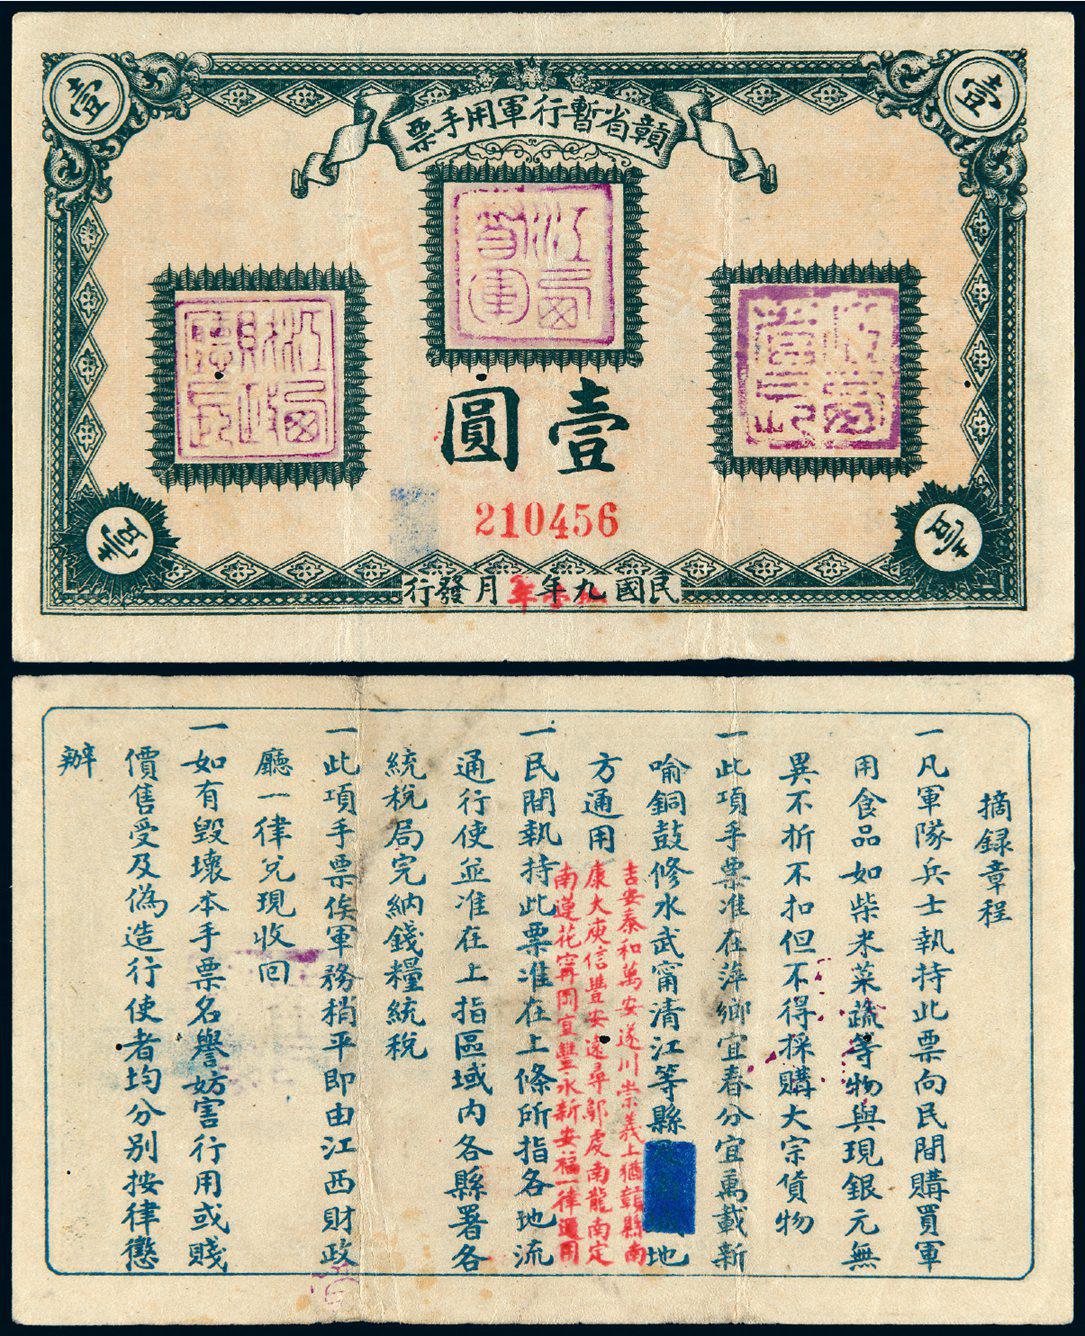 壹
壹
贛省暫行軍用手票
江西督軍
江西財政廳長
壹圓
210456
壹
壹
民國九年 月發行
摘録章程
一凡軍隊兵士執持此票向民間購買軍
用食品如柴米菜蔬等物與現銀元無
異不折不扣但不得採購大宗貨物
一此項手票准在萍鄉宜春分宜萬載新
喻銅鼓修水武甯清江等縣地
方通用
吉安泰和萬安遂川崇義上猶贛縣南
康大庾信豐安遠尋鄔虔南龍南定
南蓮花甯岡宜豐永新安福一律通用
一民間執持此票准在上條所指各地流
通行使並准在上指區域内各縣署各
統税局完納錢糧統税
一此項手票俟軍務稍平即由江西財政
廳一律兌現收回
一如有毀壞本手票名譽妨害行用或賤
價售受及偽造行使者均分別按律懲
辦